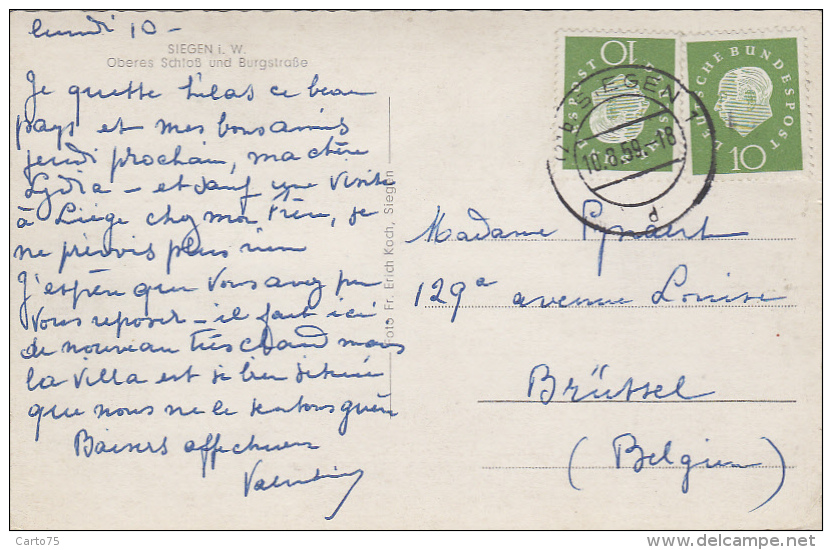 lundi 10 -
SIEGEN i. W.
Oberes Schloß und Burgstraße
Je quitte hélas ce beau
pays et mes bons amis
jeudi prochain, ma chère
Lydia - et sauf une visite
à Liège chez mon frère, je
ne prévois plus rien
J'espère que vous avez pu
vous reposer - il fait ici
de nouveau très chaud mais
la villa est si bien située
que nous ne le sentons guère
Baisers affectueux
Valentine
Foto Fr. Erich Koch, Siegen
DEUTSCHE BUNDESPOST
10
DEUTSCHE BUNDESPOST
10
SIEGEN 1
10.8.59.-18
d
Madame
129a avenue Louise
Brüssel
(Belgien)
Carto75
www.delcampe.net